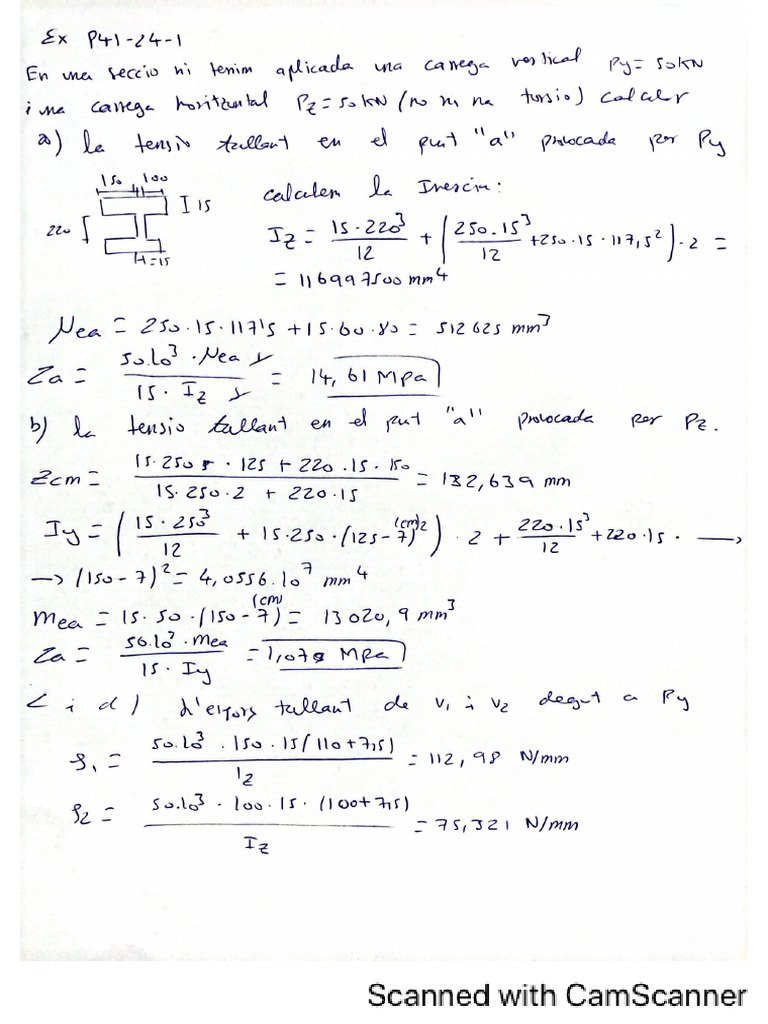 Ex P41-24-1
En una seccio ni tenim aplicada una carrega vertical Py = 50kN
i una carrega horitzontal Pz = 50kN (no hi ha torsio) calcular
a) la tensio tallant en el punt "a" provocada per Py
150 100
15
220
t=15
calculem la Inercia:
Iz = 15·220³/12 + (250·15³/12 + 250·15·117,5²)·2 =
= 116997500 mm⁴
Mea = 250·15·117,5 + 15·60·80 = 512625 mm³
Za = 50·10³·Mea y / 15·Iz y = 14,61 MPa
b) la tensio tallant en el punt "a" provocada per Pz.
Zcm = 15·250 · 125 + 220·15·150 / 15·250·2 + 220·15 = 132,639 mm
Iy = (15·250³/12 + 15·250·(125-z(cm))²)·2 + 220·15³/12 + 220·15· →
→ (150-z)² = 4,0556·10⁷ mm⁴
Mea = 15·50·(150-z(cm)) = 13020,9 mm³
Za = 50·10³·Mea / 15·Iy = 1,070 MPa
c i d) L'esforç tallant de v1 i v2 degut a Py
S1 = 50·10³·150·15(110+7,5) / Iz = 112,98 N/mm
S2 = 50·10³·100·15·(100+7,5) / Iz = 75,321 N/mm
Scanned with CamScanner